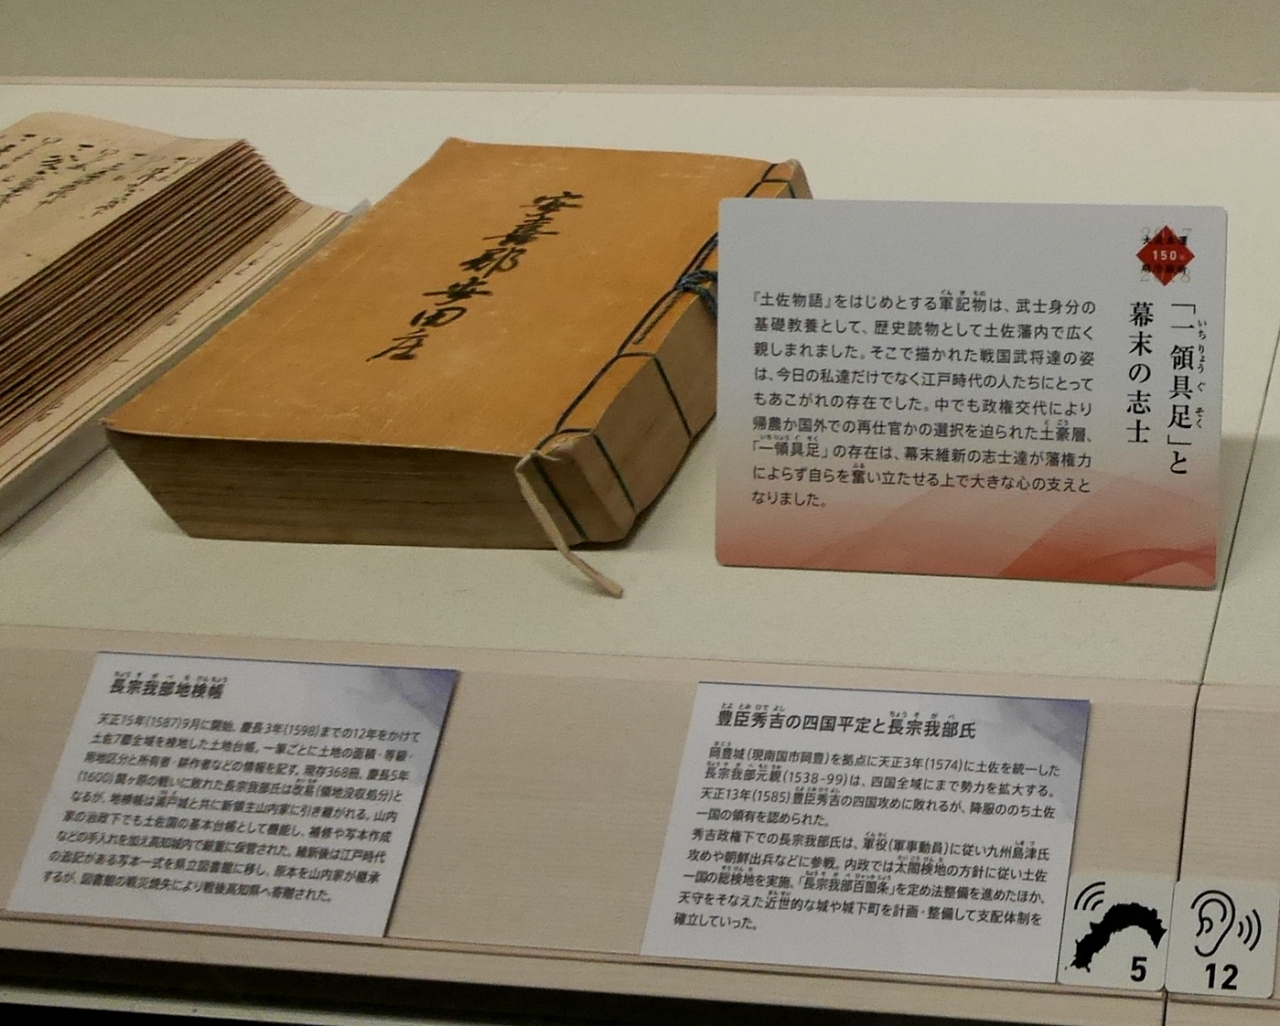 安喜郡安田庄
150
「一領具足」と
いちりょうぐそく
幕末の志士
『土佐物語』をはじめとする軍記物は、武士身分の
ぐんきもの
基礎教養として、歴史読物として土佐藩内で広く
親しまれました。そこで描かれた戦国武将達の姿
は、今日の私達だけでなく江戸時代の人たちにとって
もあこがれの存在でした。中でも政権交代により
帰農か国外での再仕官かの選択を迫られた土豪層、
どごう
「一領具足」の存在は、幕末維新の志士達が藩権力
いちりょうぐそく
によらず自らを奮い立たせる上で大きな心の支えと
ふる
なりました。
ちょうそがべちけんちょう
長宗我部地検帳
天正15年(1587)9月に開始。慶長3年(1598)までの12年をかけて
土佐7郡全域を検地した土地台帳。一筆ごとに土地の面積・等級・
用地区分と所有者・耕作者などの情報を記す。現存368冊。慶長5年
(1600)関ヶ原の戦いに敗れた長宗我部氏は改易(領地没収処分)と
なるが、地検帳は浦戸城と共に新領主山内家に引き継がれる。山内
家の治政下でも土佐国の基本台帳として機能し、補修や写本作成
などの手入れを加え高知城内で厳重に保管された。維新後は江戸時代
の追記がある写本一式を県立図書館に移し、原本を山内家が継承
するが、図書館の戦災焼失により戦後高知県へ寄贈された。
とよとみひでよし ちょうそがべ
豊臣秀吉の四国平定と長宗我部氏
岡豊城(現南国市岡豊)を拠点に天正3年(1574)に土佐を統一した
長宗我部元親(1538-99)は、四国全域にまで勢力を拡大する。
天正13年(1585)豊臣秀吉の四国攻めに敗れるが、降服ののち土佐
一国の領有を認められた。
秀吉政権下での長宗我部氏は、軍役(軍事動員)に従い九州島津氏
攻めや朝鮮出兵などに参戦。内政では太閤検地の方針に従い土佐
一国の総検地を実施、「長宗我部百箇条」を定め法整備を進めたほか、
天守をそなえた近世的な城や城下町を計画・整備して支配体制を
確立していった。
5
12